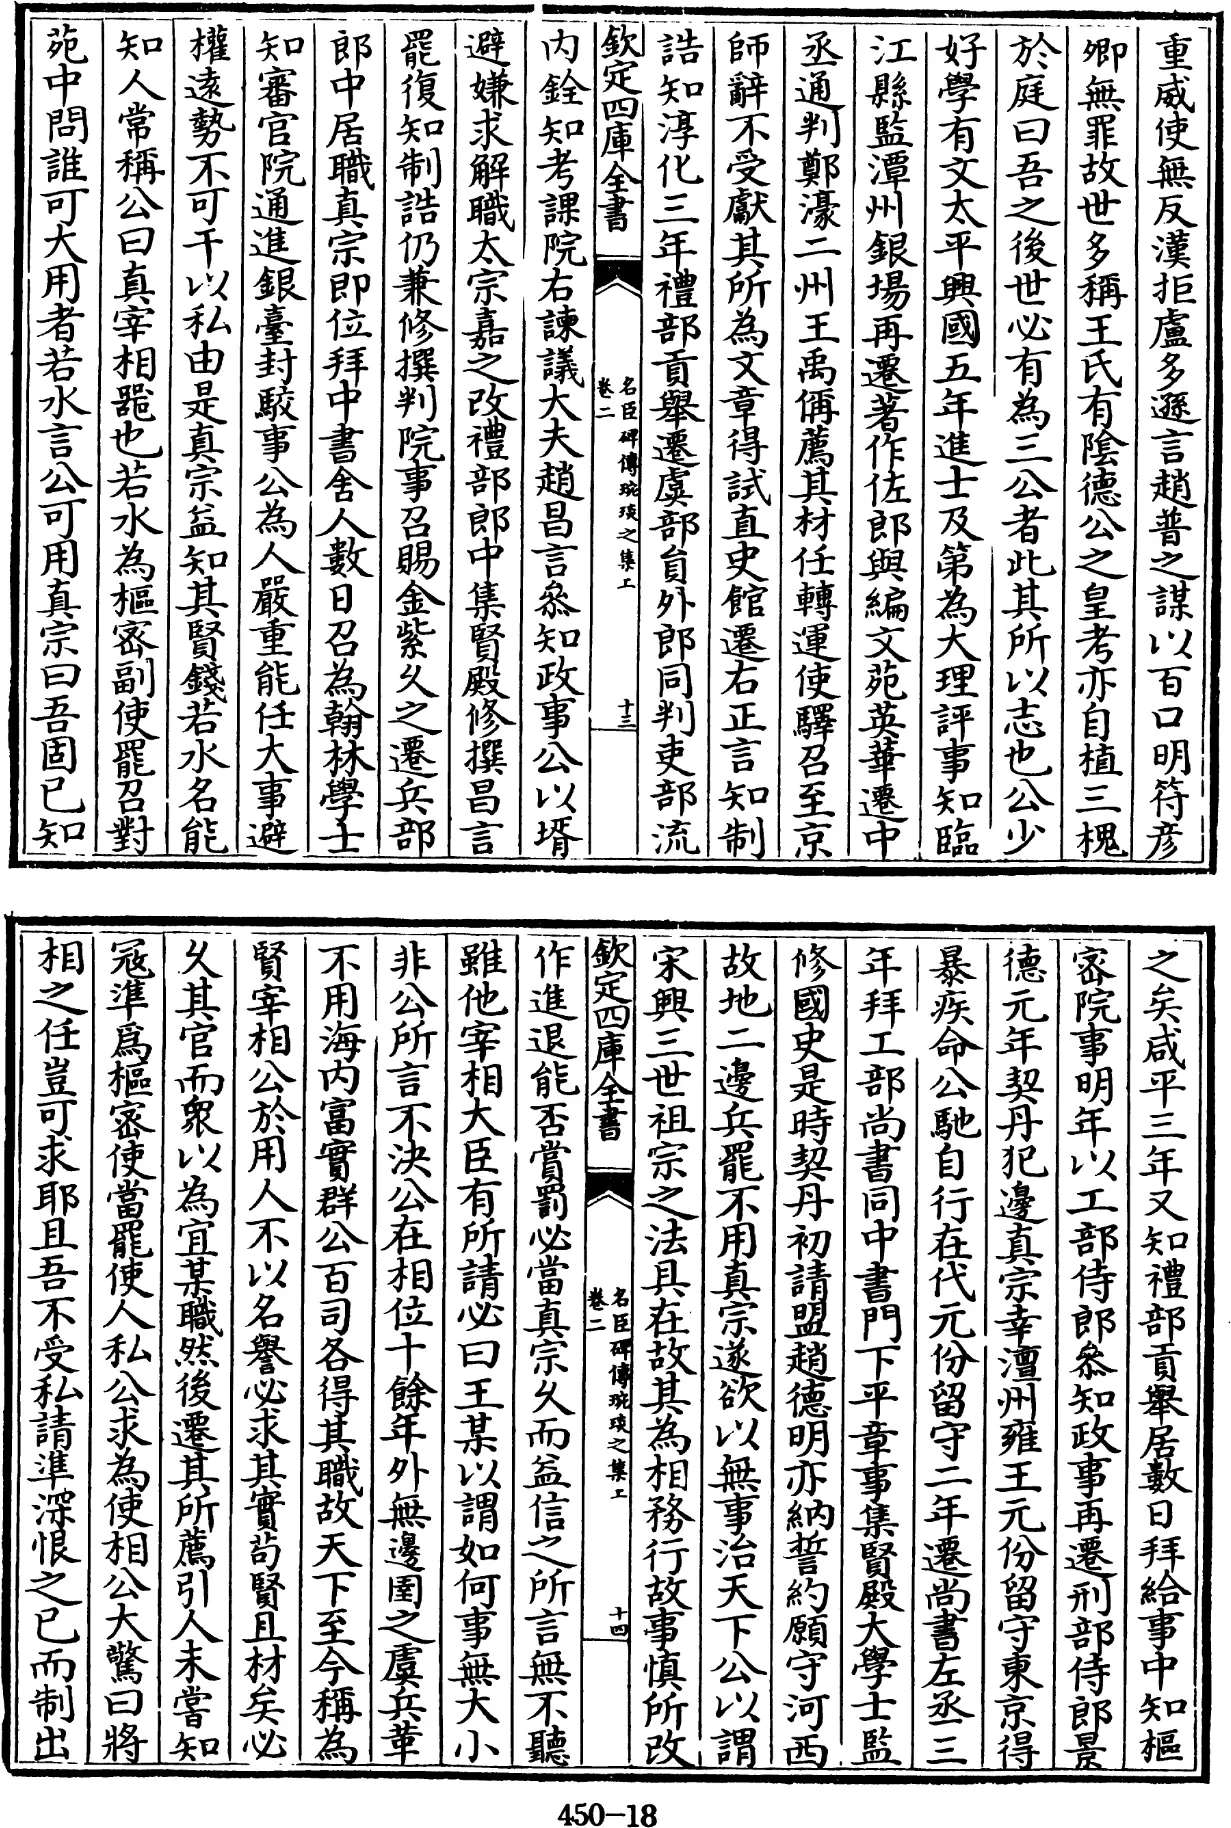 重威使無反漢拒盧多遜言趙普之謀以百口明符彥
卿無罪故世多稱王氏有陰德公之皇考亦自植三槐
於庭曰吾之後世必有為三公者此其所以志也公少
好學有文太平興國五年進士及第為大理評事知臨
江縣監潭州銀場再遷著作佐郎與編文苑英華遷中
丞通判鄭濠二州王禹偁薦其材任轉運使驛召至京
師辭不受獻其所為文章得試直史館遷右正言知制
誥知淳化三年禮部貢舉遷虞部員外郎同判吏部流
欽定四庫全書
名臣碑傳琬琰之集上
卷二
十三
內銓知考課院右諫議大夫趙昌言叅知政事公以壻
避嫌求解職太宗嘉之改禮部郎中集賢殿修撰昌言
罷復知制誥仍兼修撰判院事召賜金紫久之遷兵部
郎中居職真宗即位拜中書舍人數日召為翰林學士
知審官院通進銀臺封駁事公為人嚴重能任大事避
權遠勢不可干以私由是真宗益知其賢錢若水名能
知人常稱公曰真宰相器也若水為樞密副使罷召對
苑中問誰可大用者若水言公可用真宗曰吾固已知
之矣咸平三年又知禮部貢舉居數日拜給事中知樞
密院事明年以工部侍郎叅知政事再遷刑部侍郎景
德元年契丹犯邊真宗幸澶州雍王元份留守東京得
暴疾命公馳自行在代元份留守二年遷尚書左丞三
年拜工部尚書同中書門下平章事集賢殿大學士監
修國史是時契丹初請盟趙德明亦納誓約願守河西
故地二邊兵罷不用真宗遂欲以無事治天下公以謂
宋興三世祖宗之法具在故其為相務行故事慎所改
欽定四庫全書
名臣碑傳琬琰之集上
卷二
十四
作進退能否賞罰必當真宗久而益信之所言無不聽
雖他宰相大臣有所請必曰王某以謂如何事無大小
非公所言不決公在相位十餘年外無邊圉之虞兵革
不用海內富實群公百司各得其職故天下至今稱為
賢宰相公於用人不以名譽必求其實苟賢且材矣必
久其官而衆以為宜某職然後遷其所薦引人未嘗知
冦準爲樞密使當罷使人私公求為使相公大驚曰將
相之任豈可求耶且吾不受私請準深恨之已而制出
450-18